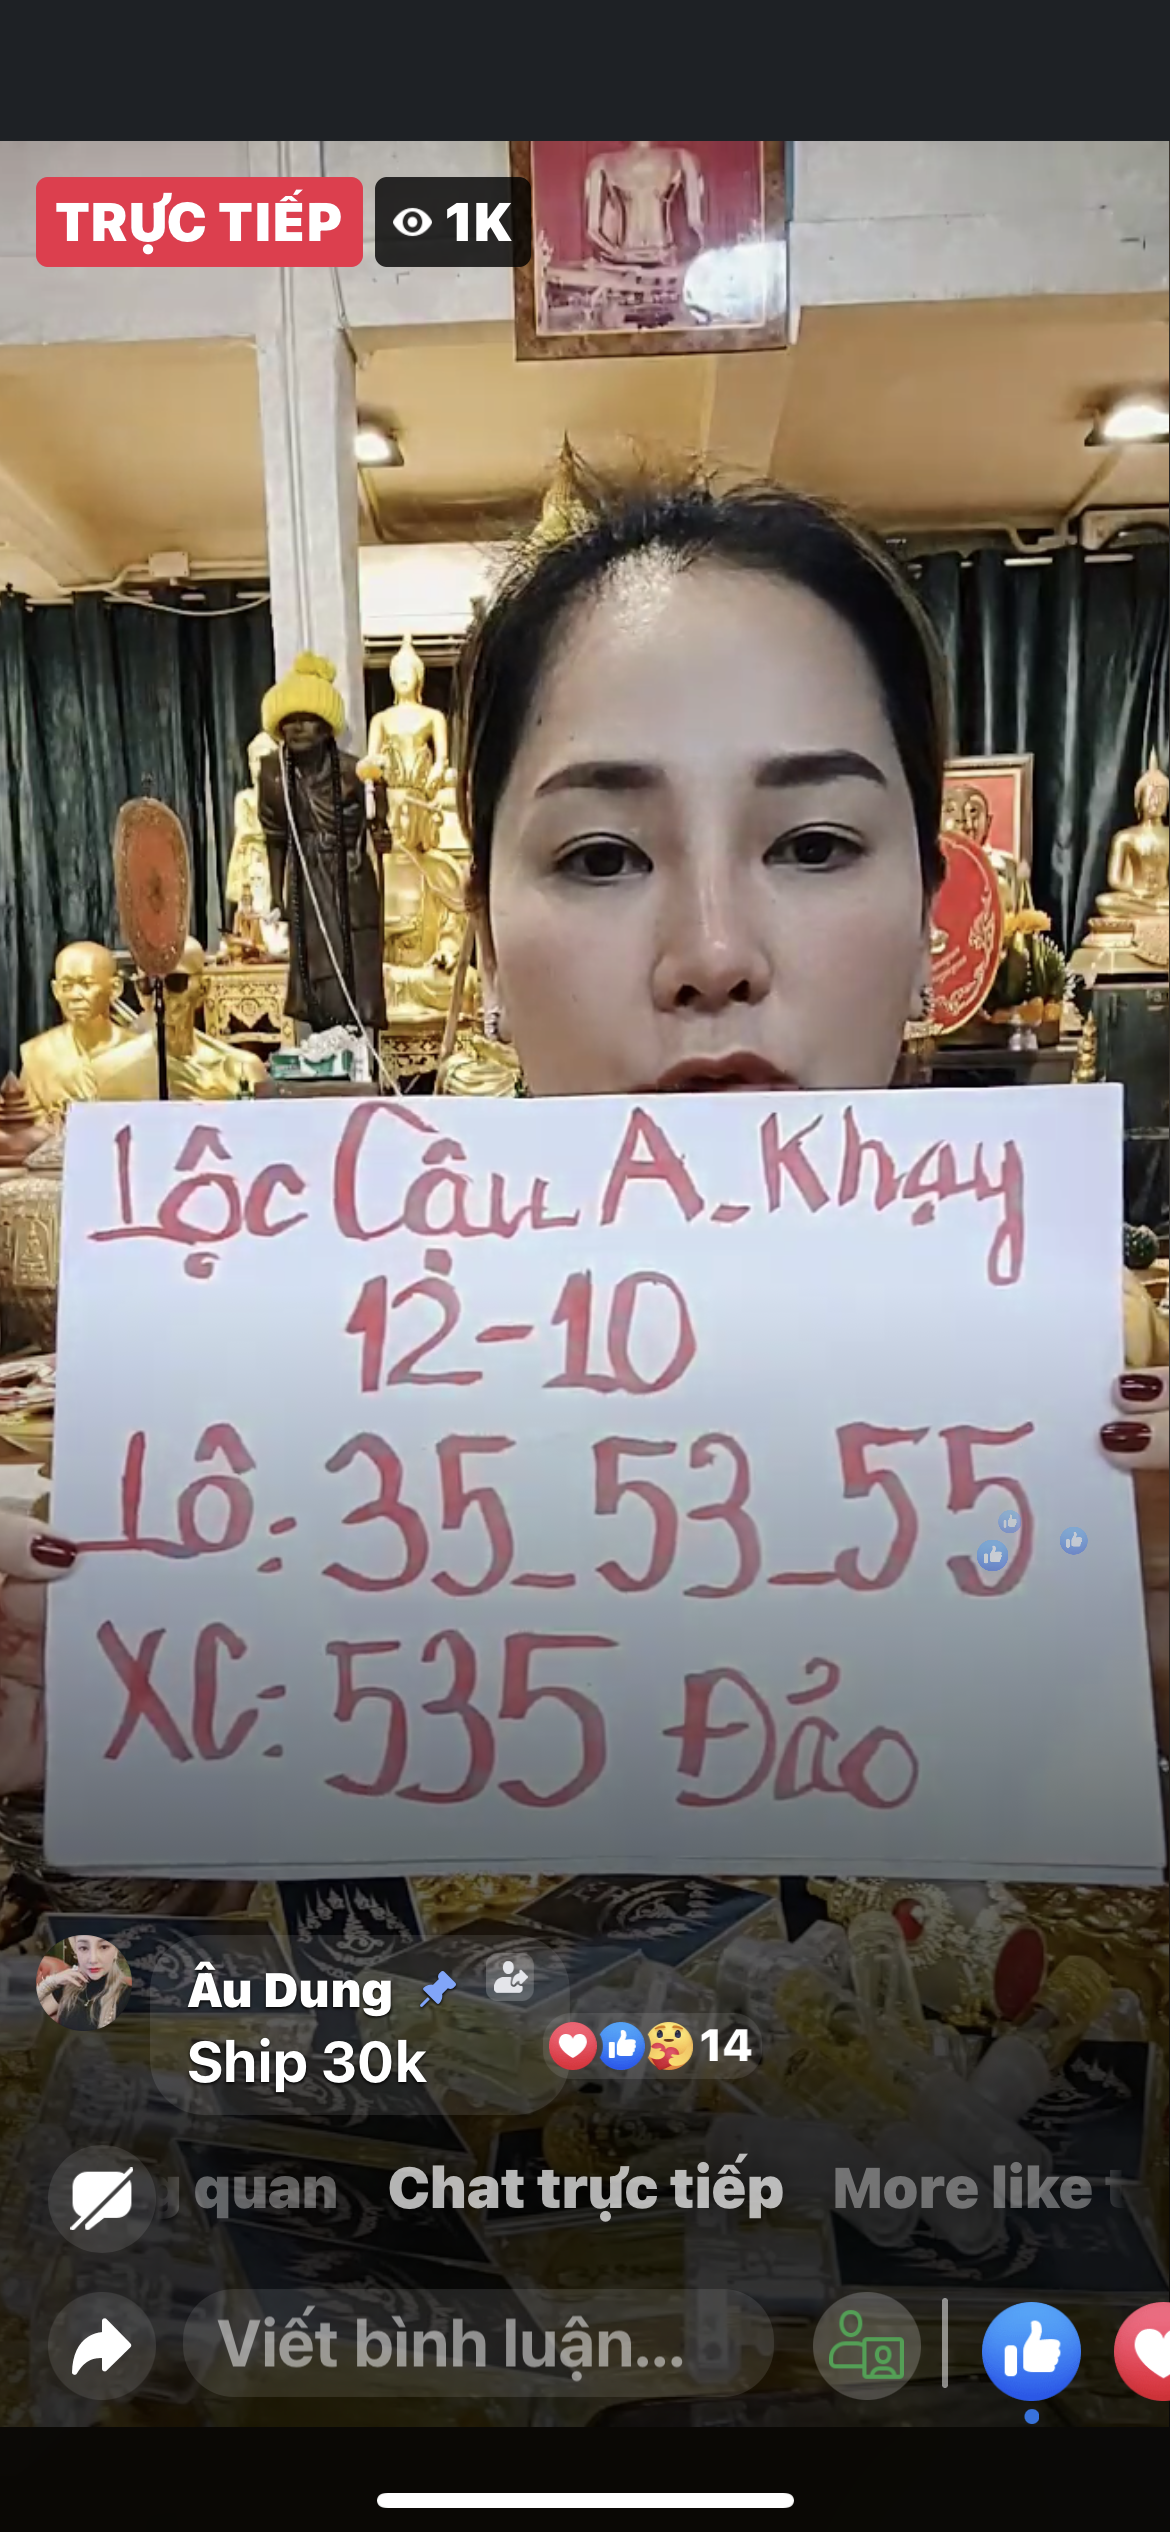 TRỰC TIẾP 1K
Lộc Cậu A. Khạy
12-10
Lô: 35_53_55
XC: 535 Đảo
Âu Dung
Ship 30k
14
quan Chat trực tiếp More like
Viết bình luận...